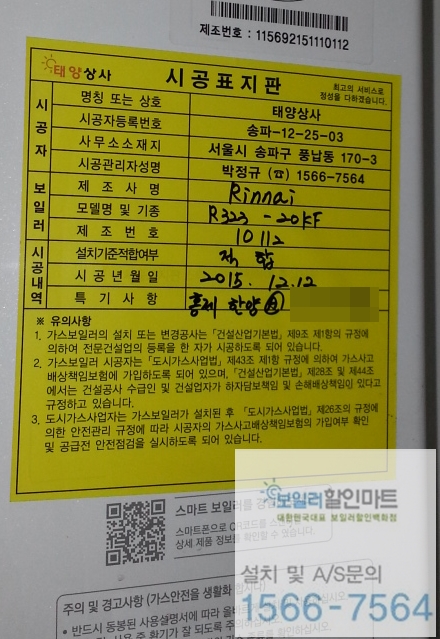 제조번호 : 115692151110112
태양상사 시공표지판 최고의 서비스로
정성을 다하겠습니다.
시공자
명칭 또는 상호 태양상사
시공자등록번호 송파-12-25-03
사무소소재지 서울시 송파구 풍납동 170-3
시공관리자성명 박정규 (☎) 1566-7564
보일러
제조사명 Rinnai
모델명 및 기종 R323 - 20KF
제조번호 10112
시공내역
설치기준적합여부 적합
시공년월일 2015. 12.12
특기사항 홍제 한양 Ⓐ
※ 유의사항
1. 가스보일러의 설치 또는 변경공사는 「건설산업기본법」 제9조 제1항의 규정에
의하여 전문건설업의 등록을 한 자가 시공하도록 되어 있습니다.
2. 가스보일러 시공자는 「도시가스사업법」 제43조 제1항 규정에 의하여 가스사고
배상책임보험에 가입하도록 되어 있으며, 「건설산업기본법」 제28조 및 제44조
에서는 건설공사 수급인 및 건설업자가 하자담보책임 및 손해배상책임이 있다고
규정하고 있습니다.
3. 도시가스사업자는 가스보일러가 설치된 후 「도시가스사업법」 제26조의 규정에
의한 안전관리 규정에 따라 시공자의 가스사고배상책임보험의 가입여부 확인
및 공급전 안전점검을 실시하도록 되어 있습니다.
스마트 보일러를 경
스마트폰으로 QR코드를 스
상세 제품 정보를 확인할 수 있습니다.
보일러할인마트
대한민국대표 보일러할인백화점
설치 및 A/S문의
1566-7564
주의 및 경고사항 (가스안전을 생활화 합시다)
• 반드시 동봉된 사용설명서에 따라 올바르게